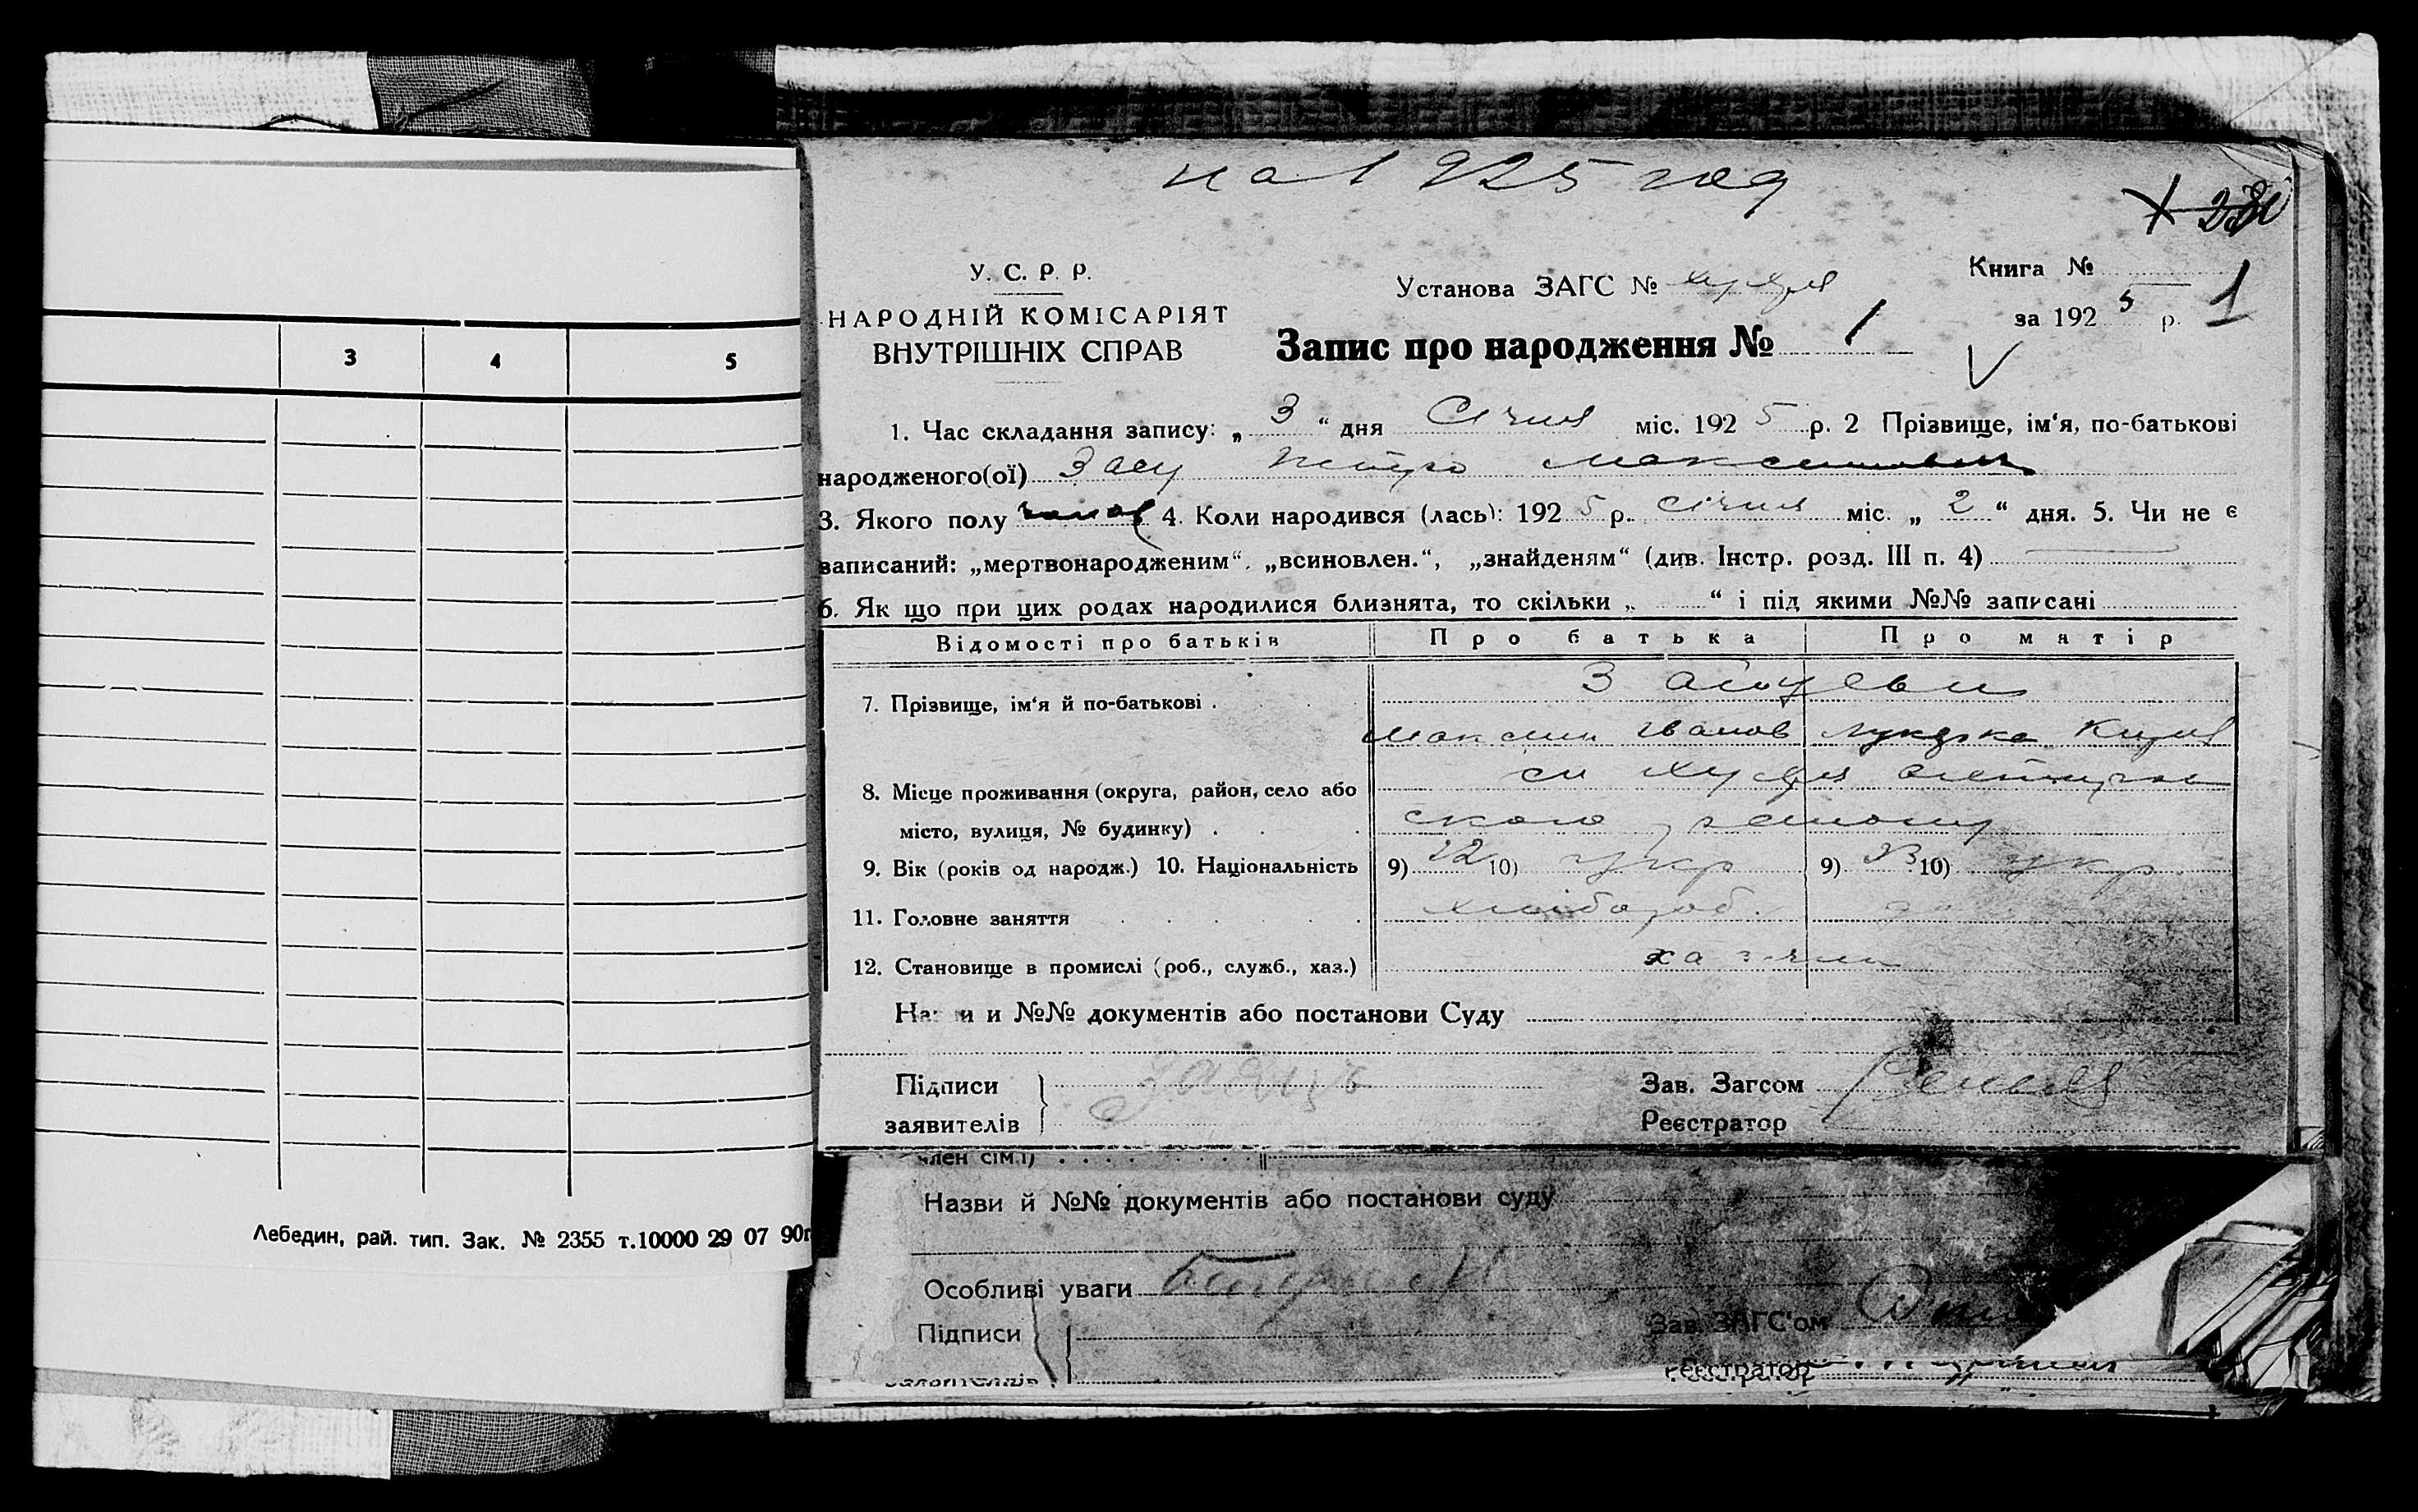 3 4 5
Лебедин, рай. тип. Зак. № 2355 т.10000 29 07 90г
на 1925 год
У. С. Р. Р.
НАРОДНІЙ КОМІСАРІЯТ
ВНУТРІШНІХ СПРАВ
Установа ЗАГС №
Книга №
за 1925 р. 1
Запис про народження № 1
1. Час складання запису: „ 3 “ дня Січня міс. 1925 р. 2 Прізвище, ім‘я, по-батькові
народженого(ої) Петро Максимович
3. Якого полу чолов 4. Коли народився (лась): 1925 р. січня міс. „ 2 “ дня. 5. Чи не є
записаний: „мертвонародженим“. „всиновлен.“, „знайденям“ (див. Інстр. розд. III п. 4)
6. Як що при цих родах народилися близнята, то скільки „ “ і під якими №№ записані
Відомості про батьків Про батька Про матір
7. Прізвище, ім‘я й по-батькові .
Максим Іванов
8. Місце проживання (округа, район, село або
місто, вулиця, № будинку) . ского району
9. Вік (років од народж.) 10. Національність 9) 22 10) укр 9) 23 10) укр.
11. Головне заняття хлібороб.
12. Становище в промислі (роб., служб., хаз.)
и №№ документів або постанови Суду
Підписи
заявителів
Зав. Загсом
Реєстратор
член сім.ї)
Назви й №№ документів або постанови суду
Особливі уваги
Підписи
Зав. ЗАГС'ом
Реєстратор